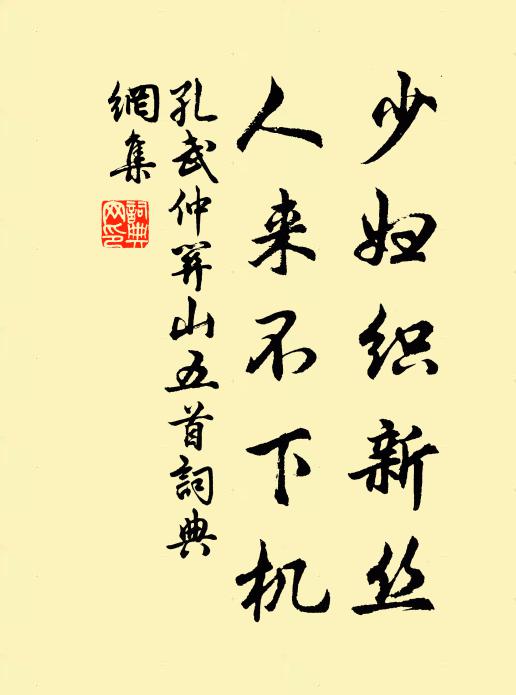 少妇织新丝
人来不下机
孔武仲箬山五首詞典
網集
詞典
网印